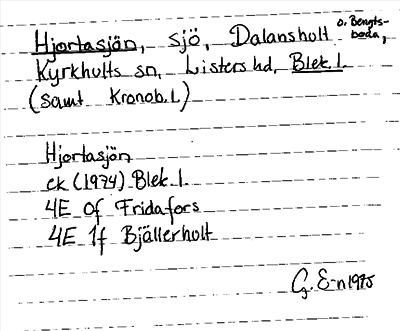 Hjortasjön, sjö, Dalansholt o. Bengtsboda,
Kyrkhults sn, Listers hd, Blek. l.
(samt Kronob. l.)
Hjortasjön
ek (1974) Blek. l.
4E 0f Fridafors
4E 1f Bjällerholt
G. E-n 1975